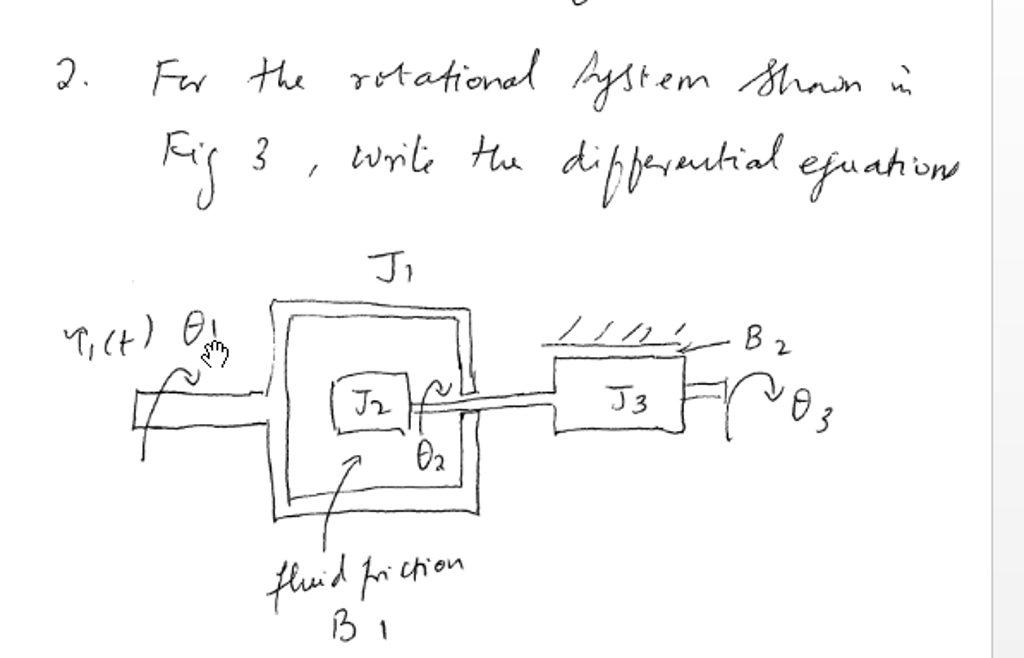 2. For the rotational system shown in
Fig 3, write the differential equations
J1
τ1(t) θ1
B2
J2
J3
θ3
θ2
fluid friction
B1